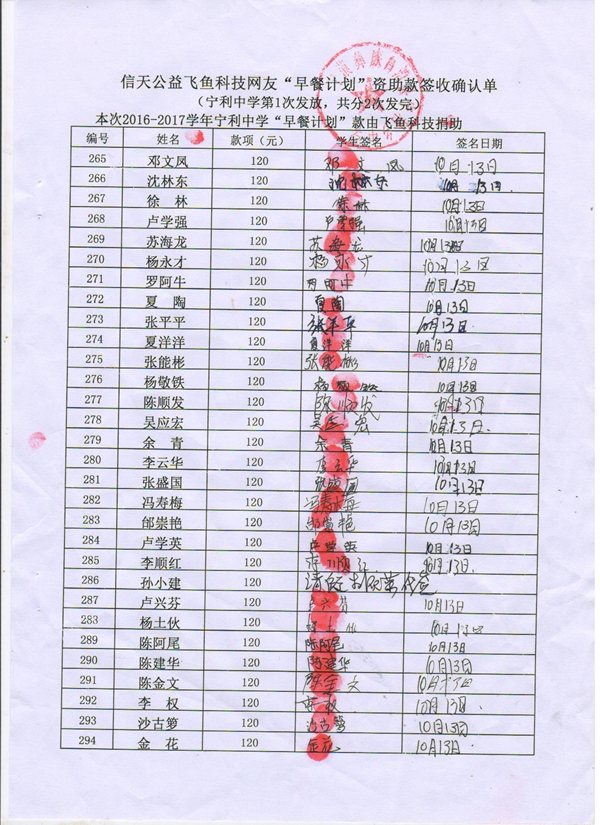 信天公益飞鱼科技网友“早餐计划”资助款签收确认单
（宁利中学第1次发放，共分2次发完）
本次2016-2017学年宁利中学“早餐计划”款由飞鱼科技捐助
编号 姓名 款项（元） 学生签名 签名日期
265 邓文凤 120 邓文凤 10月13日
266 沈林东 120 沈林东 10月13日
267 徐 林 120 徐林 10月13日
268 卢学强 120 卢学强 10月13日
269 苏海龙 120 苏海龙 10月13日
270 杨永才 120 杨永才 10月13日
271 罗阿牛 120 10月13日
272 夏 陶 120 夏陶 10月13日
273 张平平 120 张平平 10月13日
274 夏洋洋 120 夏洋洋 10月13日
275 张能彬 120 张能彬 10月13日
276 杨敬铁 120 杨敬 10月13日
277 陈顺发 120 陈顺发 10月13日
278 吴应宏 120 吴应宏 10月13日
279 余 青 120 余青 10月13日
280 李云华 120 李云华 10月13日
281 张盛国 120 张盛国 10月13日
282 冯寿梅 120 冯寿梅 10月13日
283 邰崇艳 120 邰崇艳 10月13日
284 卢学英 120 卢学英 10月13日
285 李顺红 120 李顺红 10月13日
286 孙小建 120
287 卢兴芬 120 卢兴芬 10月13日
283 杨土伙 120 10月13日
289 陈阿尾 120 陈阿尾 10月13日
290 陈建华 120 陈建华 10月13日
291 陈金文 120 陈金文 10月13日
292 李 权 120 李权 10月13日
293 沙古箩 120 沙古箩 10月13日
294 金 花 120 金花 10月13日